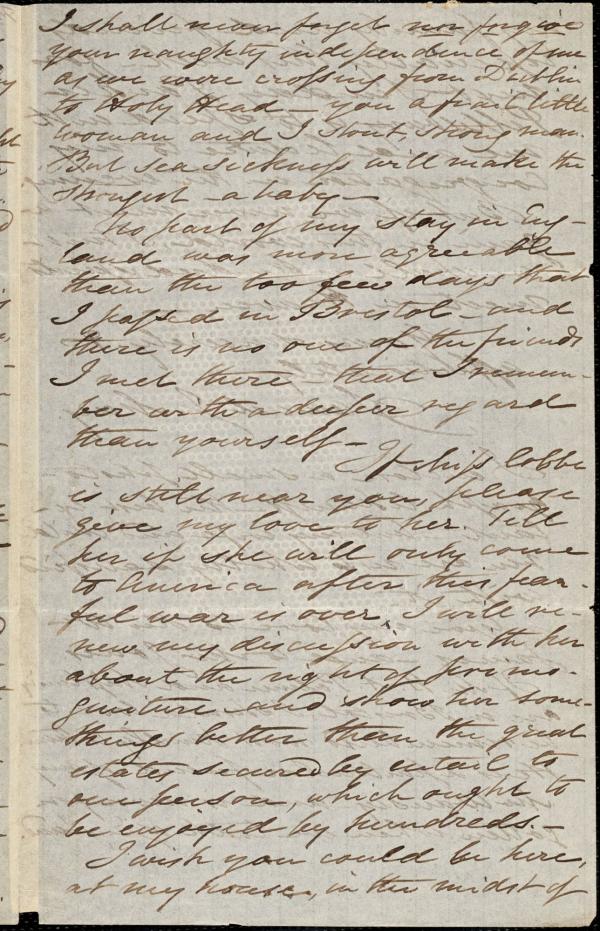 I shall never forget nor forgive
your naughty independence of me
as we were crossing from Dublin
to Holy Head – you a frail little
woman and I stout, strong man.
But sea sickness will make the
strongest – a baby –
No part of my stay in Eng-
land was more agreeable
than the too few days that
I passed in Bristol – and
there is no one of the friends
I met there – that I remem-
ber with a deeper regard
than yourself –
If Miss Cobbe
is still near you, please
give my love to her. Tell
her if she will only come
to America after this fear-
ful war is over, I will re-
new my discussion with her
about the right of primo-
geniture – and show her some-
things better than the great
estates secured by entail to
one person, which ought to
be enjoyed by hundreds. –
I wish you could be here,
at my house, in the midst of